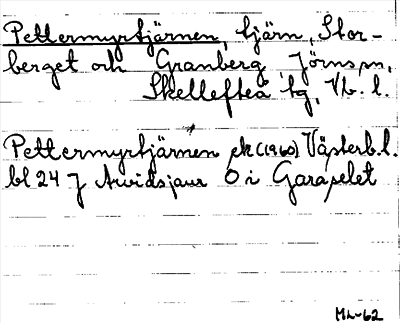 Pettermyrtjärnen, tjärn, Stor-
berget och Granberg Jörns sn,
Skellefteå tg, Vb. l.
Pettermyrtjärnen ek (1960) Västerb. l.
bl 24 J Arvidsjaur O i Garaselet